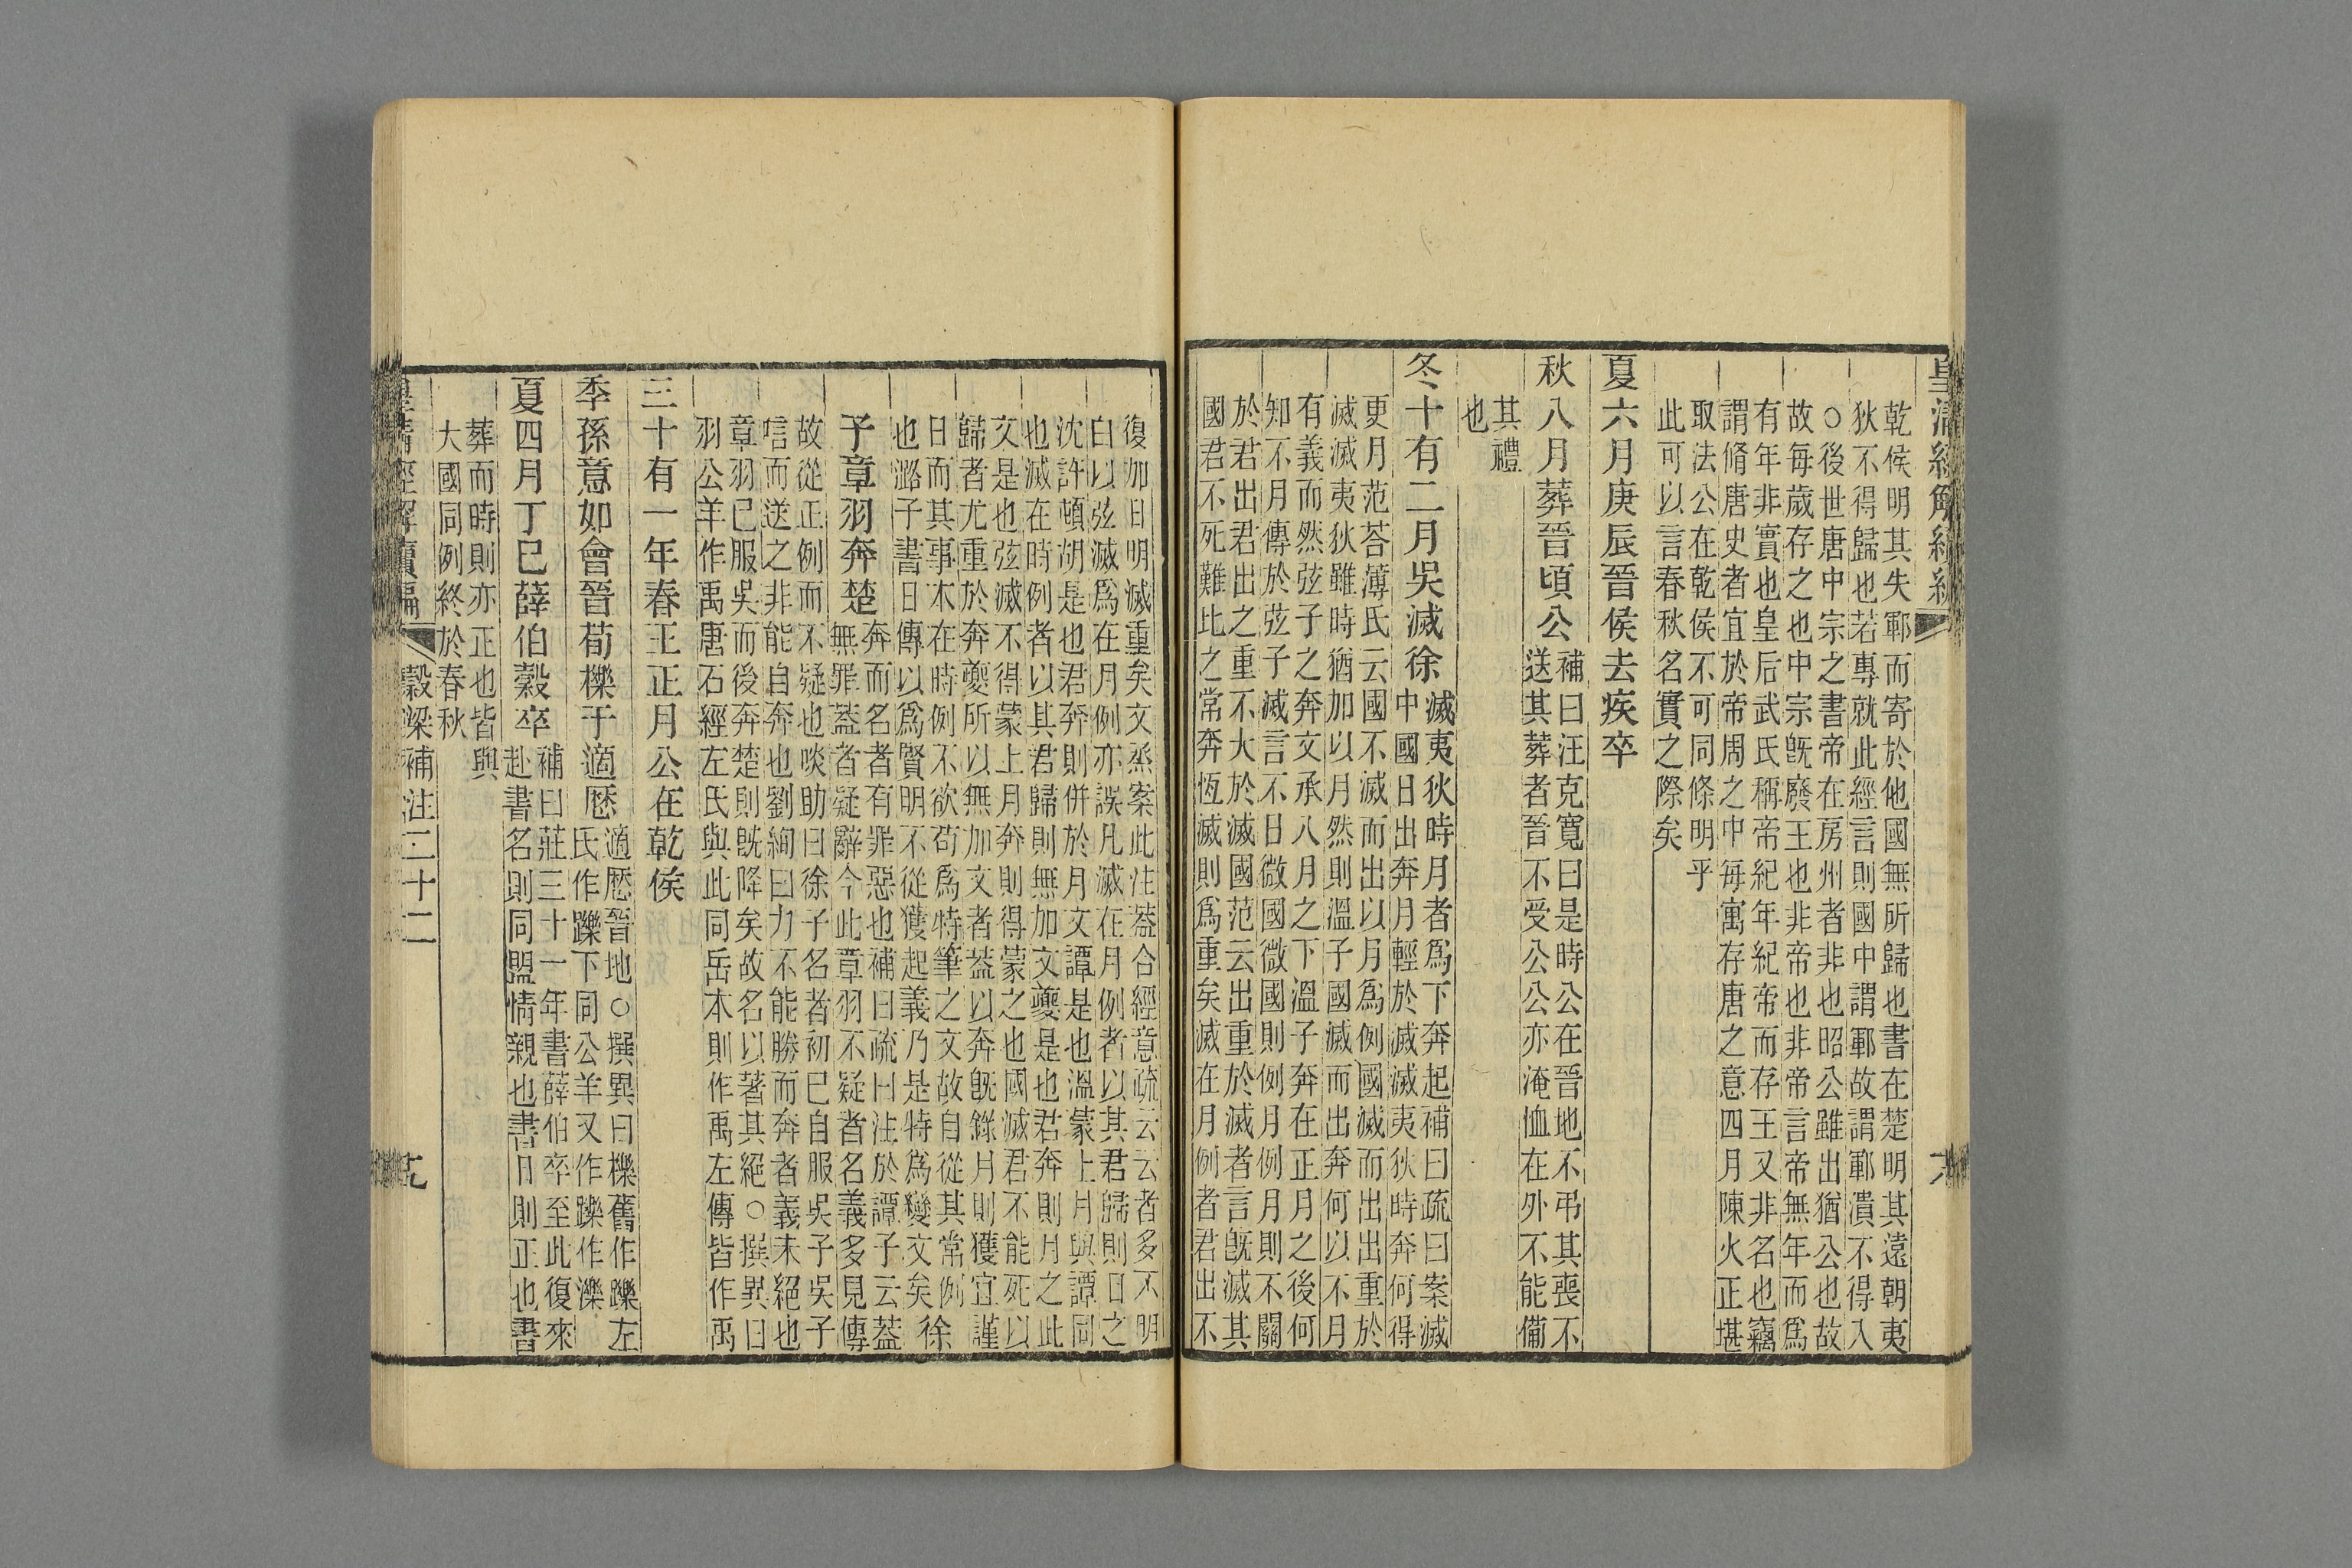 乾侯明其失鄆而寄於他國無所歸也書在楚明其遠朝夷
狄不得歸也若專就此經言則國中謂鄆故謂鄆潰不得入
○後世唐中宗之書帝在房州者非也昭公雖出猶公也故
故每歲存之也中宗旣廢王也非帝也非帝言帝無年而爲
有年非實也皇后武氏稱帝紀年紀帝而存王又非名也竊
謂脩唐史者宜於帝周之中每寓存唐之意四月陳火正堪
取法公在乾侯不可同條明乎
此可以言春秋名實之際矣
夏六月庚辰晉侯去疾卒
秋八月葬晉頃公
補曰汪克寬曰是時公在晉地不弔其喪不
送其葬者晉不受公公亦淹恤在外不能備
其禮
也
冬十有二月吳滅徐
滅夷狄時月者爲下奔起補曰疏曰案滅
中國日出奔月輕於滅滅夷狄時奔何得
更月范荅薄氏云國不滅而出以月爲例國滅而出出重於
滅滅夷狄雖時猶加以月然則溫子國滅而出奔何以不月
有義而然弦子之奔文承八月之下溫子奔在正月之後何
知不月傳於弦子滅言不日微國微國則例月例月則不關
於君出君出之重不大於滅國范云出重於滅者言旣滅其
國君不死難此之常奔恆滅則爲重矣滅在月例者君出不
復加日明滅重矣文烝案此注葢合經意疏云云者多不明
白以弦滅爲在月例亦誤凡滅在月例者以其君歸則日之
沈許頓胡是也君奔則併於月文譚是也溫蒙上月與譚同
也滅在時例者以其君歸則無加文夔是也君奔則月之此
文是也弦滅不得蒙上月奔則得蒙之也國滅君不能死以
歸者尤重於奔夔所以無加文者葢以奔旣錄月則獲宜謹
日而其事本在時例不欲苟爲特筆之文故自從其常例徐
也潞子書日傳以爲賢明不從獲起義乃是特爲變文矣
子章羽奔楚
奔而名者有罪惡也補曰疏曰注於譚子云葢
無罪葢者疑辭今此章羽不疑者名義多見傳
故從正例而不疑也啖助曰徐子名者初巳自服吳子吳子
唁而送之非能自奔也劉絢曰力不能勝而奔者義未絕也
章羽已服吳而後奔楚則旣降矣故名以著其絕○撰異曰
羽公羊作禹唐石經左氏與此同岳本則作禹左傳皆作禹
三十有一年春王正月公在乾侯
季孫意如會晉荀櫟于適厯
適厯晉地○撰異曰櫟舊作躒左
氏作躒下同公羊又作躒作濼
夏四月丁巳薛伯穀卒
補曰莊三十一年書薛伯卒至此復來
赴書名則同盟情親也書日則正也書
葬而時則亦正也皆與
大國同例終於春秋
穀梁補注二十二